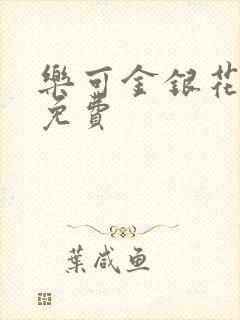 樂可金銀花
免費
葉咸鱼